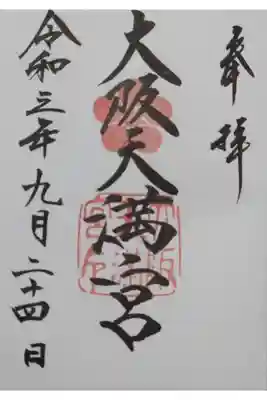 奉拝
大阪天満宮
令和三年九月二十四日